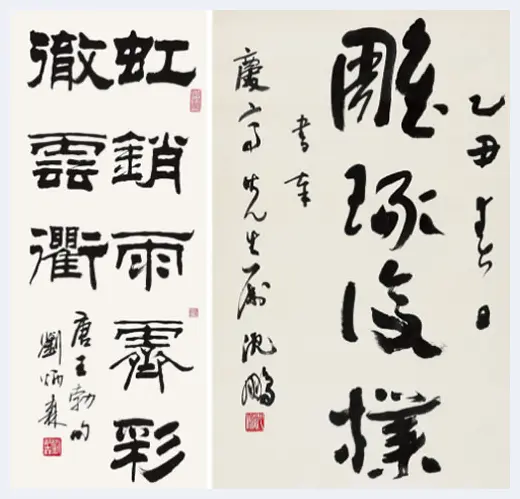 虹銷雨霽彩
徹雲衢
唐王勃句
劉炳森
乙丑春日
雕琢復樸
書奉
慶富先生屬沈鵬